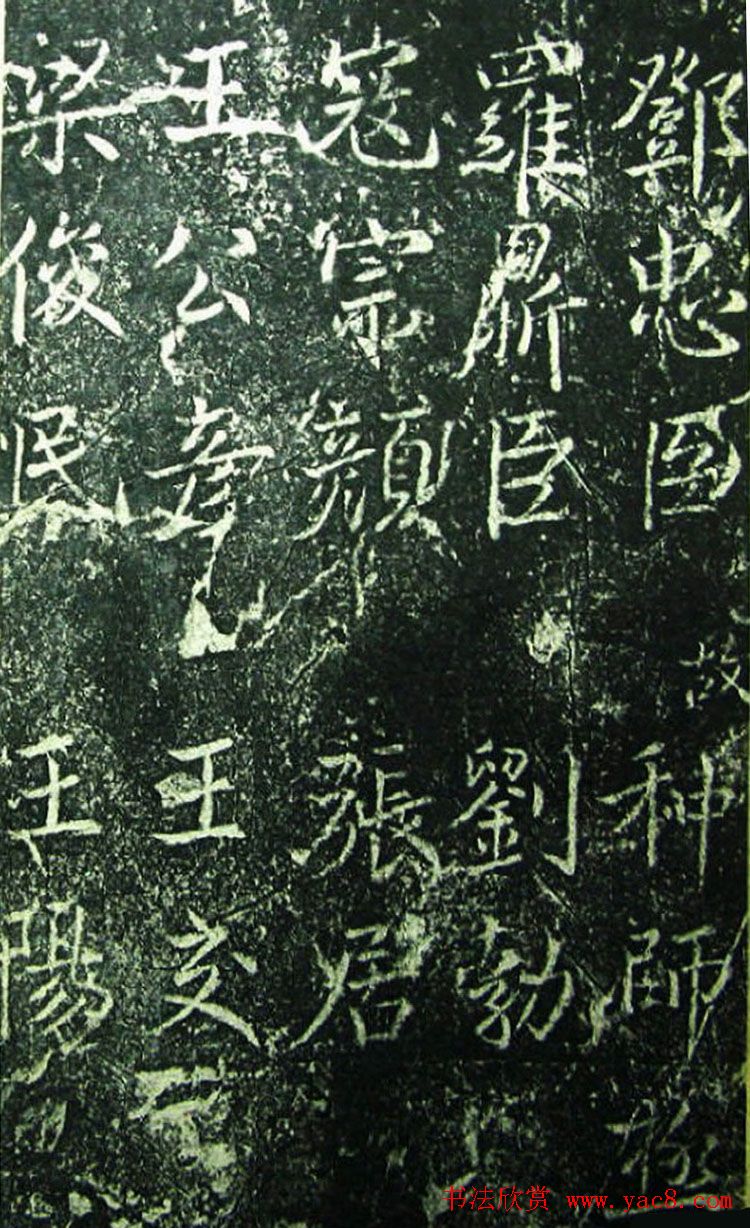 鄧忠臣
故 种師極
羅鼎臣 劉勃
寇宗顏 張居
王公彥 王交
梁俊民 王陽
书法欣赏 www.yac8.com